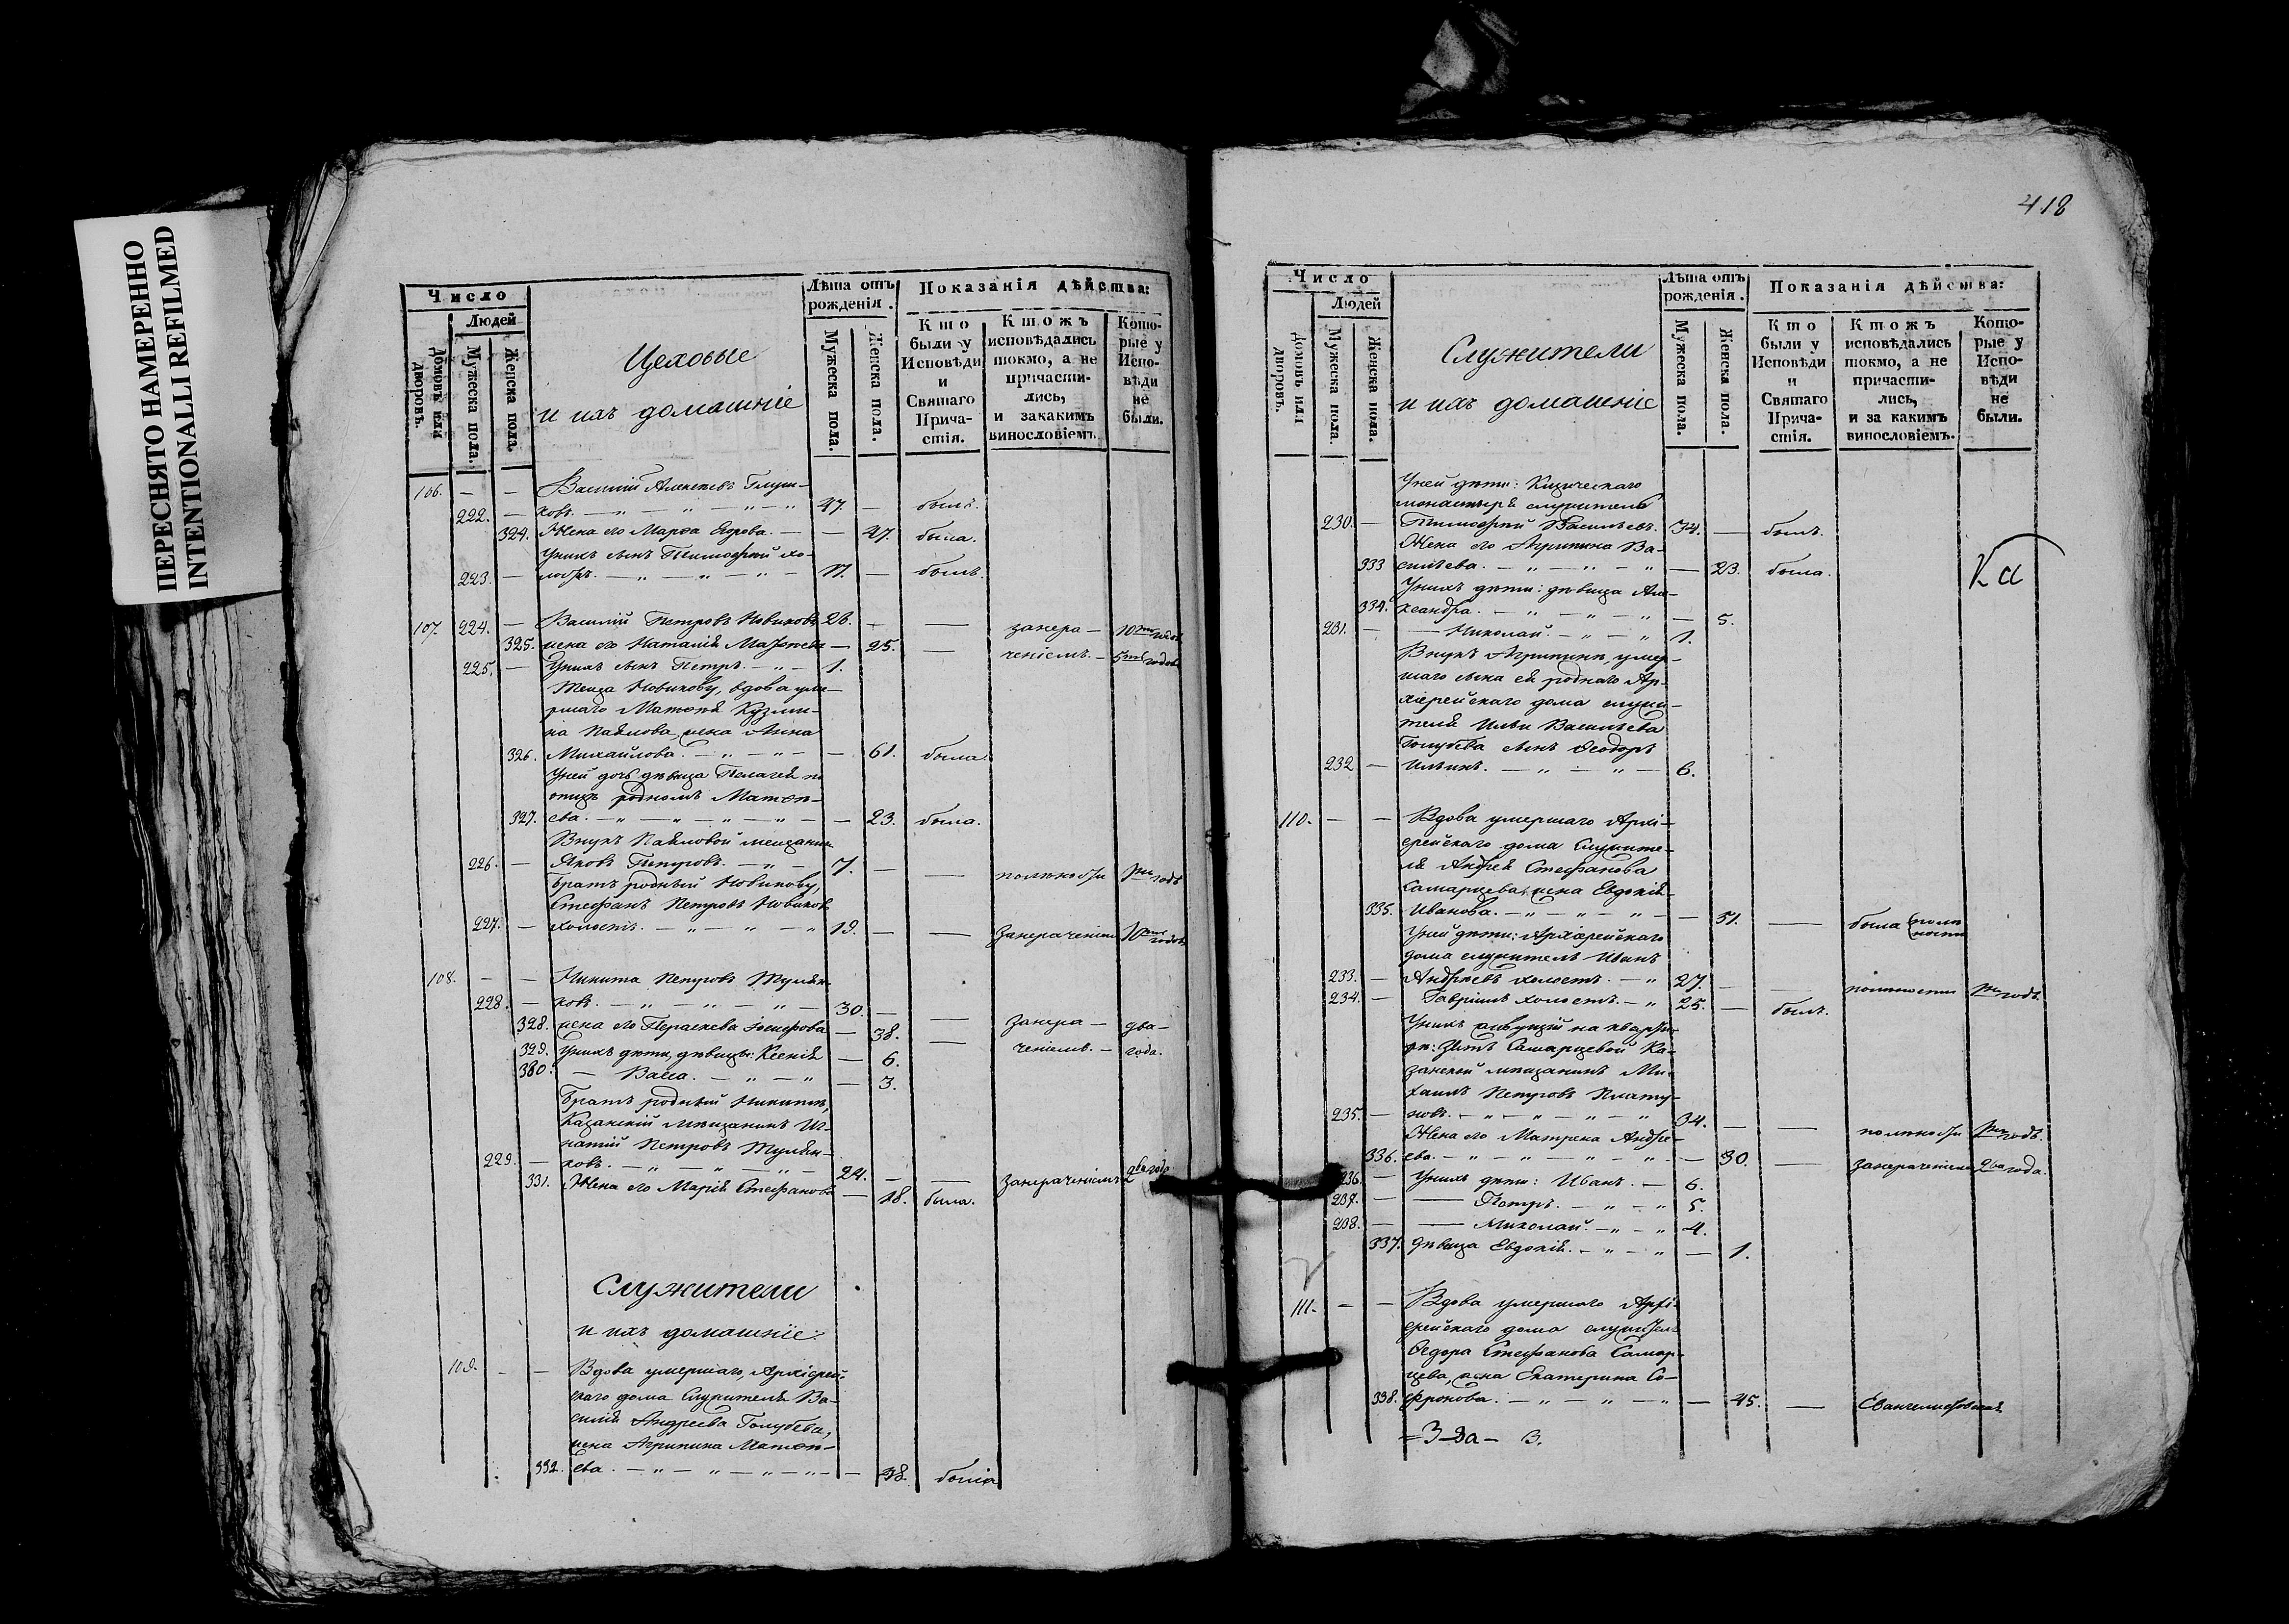 ПЕРЕСНЯТО НАМЕРЕННО
INTENTIONALLI REFILMED
Число
Людей
Домовъ или дворовъ.
Мужеска пола.
Женска пола.
Цеховые
и ихъ домашніе
Лѣта отъ рожденія.
Мужеска пола.
Женска пола.
Показанія дѣйства:
Кто были у Исповѣди и Святаго Прича-стія.
Ктожъ исповѣдались токмо, а не причасти-лись, и закакимъ винословіемъ.
Кото-рые у Испо-вѣди не были.
106. — — Василій Алексѣевъ Глуш-
222. — ковъ. — „ — „ — „ — „ 47. — былъ.
324. Жена его Марѳа Егорова. — — 47. была.
Унихъ сынъ Тимоѳей хо-
223. — лостъ. — „ — „ — „ — 17. — былъ.
107. 224. — Василій Петровъ Новиковъ 26. — — закера — 10ть годовъ
325. жена его Наталія Матѳеева — 25. — ченіемъ. — 5ть годовъ
225. — Унихъ сынъ Петръ. — „ — 1.
Теща Новикову, вдова уме-
ршаго Матѳея Кузми-
на Павлова, жена Анна
326. Михайлова. — „ — „ — — 61. была.
Уней дочь дѣвица Пелагея по
отцѣ родномъ Матѳе-
327. ева. — „ — „ — „ — „ — — 23. была.
Внукъ Павловой мещанинъ
226. — Яковъ Петровъ. — „ — 7. — — помалости годъ
Братъ родный Новикову,
Стефанъ Петровъ Новиковъ
227. — холостъ. — „ — „ — „ 19. — — Закераченіемъ 10ть годовъ
108. — — Никита Петровъ Туляк-
228. — ковъ. — „ — „ — „ — 30. —
328. жена его Параскева Іосифова — 38. — Закера — два —
329. Унихъ дѣти, дѣвицы: Ксенія — 6. — ченіемъ. — года.
330. — Васса. — „ — „ — 3.
Братъ родный Никитѣ,
Казанскій мѣщанинъ Иг-
натій Петровъ Туляк-
229. — ковъ. — „ — „ — „ — 24. — — Закераченіемъ 2ва года
331. Жена его Марія Стефанова — 18. была.
Служители
и ихъ домашніе:
109. — — Вдова умершаго Архіерей-
скаго дома Служителя Ва-
силія Андреева Голубева,
жена Агрипина Матѳе-
332. ева. — „ — „ — „ — „ — — 58. была
418
Число
Людей
Домовъ или дворовъ.
Мужеска пола.
Женска пола.
Служители
и ихъ домашніе
Лѣта отъ рожденія.
Мужеска пола.
Женска пола.
Показанія дѣйства:
Кто были у Исповѣди и Святаго Прича-стія.
Ктожъ исповѣдались токмо, а не причасти-лись, и за какимъ винословіемъ.
Кото-рые у Испо-вѣди не были.
Уней дѣти: Кизическаго
монастыря служитель
230. — Тимоѳей Васильевъ. 34. — былъ.
Жена его Агрипина Ва-
333 сильева. — „ — „ — „ — 23. была.
Унихъ дѣти: дѣвица Але-
334. ксандра. — „ — „ — „ — 5.
231. — — Николай. — „ — „ 1.
Внукъ Агрипины, умер-
шаго сына ея роднаго Ар-
хіерейскаго дома служи-
теля Ильи Васильева
Голубева сынъ Ѳеодоръ
232 — Ильинъ. — „ — „ — 6.
110. — — Вдова умершаго Архі-
ерейскаго дома Служите-
ля Андрея Стефанова
Самарцева, жена Евдокія
335. Иванова. — „ — „ — „ — — 51. — была
Уней дѣти: Архіерейскаго
дома служитель Иванъ
233. — Андреевъ холостъ. — „ 27. — — помалости годъ.
234. — Гавріилъ холостъ. — „ 25. — былъ.
Унихъ живущій на кварти-
рѣ: Зять Самарцевой Ка-
занскій мѣщанинъ Ми-
хаилъ Петровъ Плату-
235. — новъ. — „ — „ — „ — „ 34. — — помалости годъ.
Жена его Матрена Андре-
336. ева. — „ — „ — „ — „ — 30. — закераченіемъ 2ва года.
236. — Унихъ дѣти: Иванъ. — 6.
237. — — Петръ. — „ — „ 5.
238. — — Николай. — „ — „ 4.
337. дѣвица Евдокія. — „ — „ — 1.
111. — — Вдова умершаго Архі-
ерейскаго дома служителя
Ѳедора Стефанова Самар-
цева, жена Екатерина Со-
338. фронова. — „ — „ — „ — 45. —